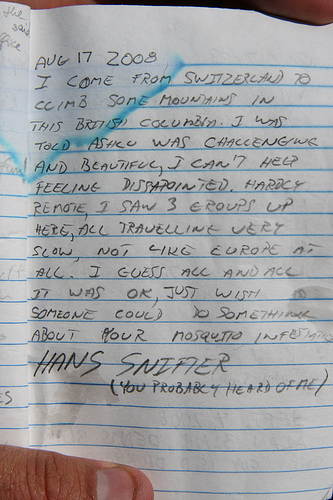 the
said
office
AUG 17 2008
I COME FROM SWITZERLAND TO
CLIMB SOME MOUNTAINS IN
THIS BRITISH COLUMBIA. I WAS
TOLD ASHLU WAS CHALLENGING
AND BEAUTIFUL, I CAN'T HELP
FEELING DISSAPOINTED. HARDLY
REMOTE, I SAW 3 GROUPS UP
HERE, ALL TRAVELLING VERY
SLOW, NOT LIKE EUROPE AT
ALL. I GUESS ALL AND ALL
IT WAS OK, JUST WISH
SOMEONE COULD DO SOMETHING
ABOUT YOUR MOSQUITO
HANS SNIFFER
(YOU PROBABLY HEARD OF ME)